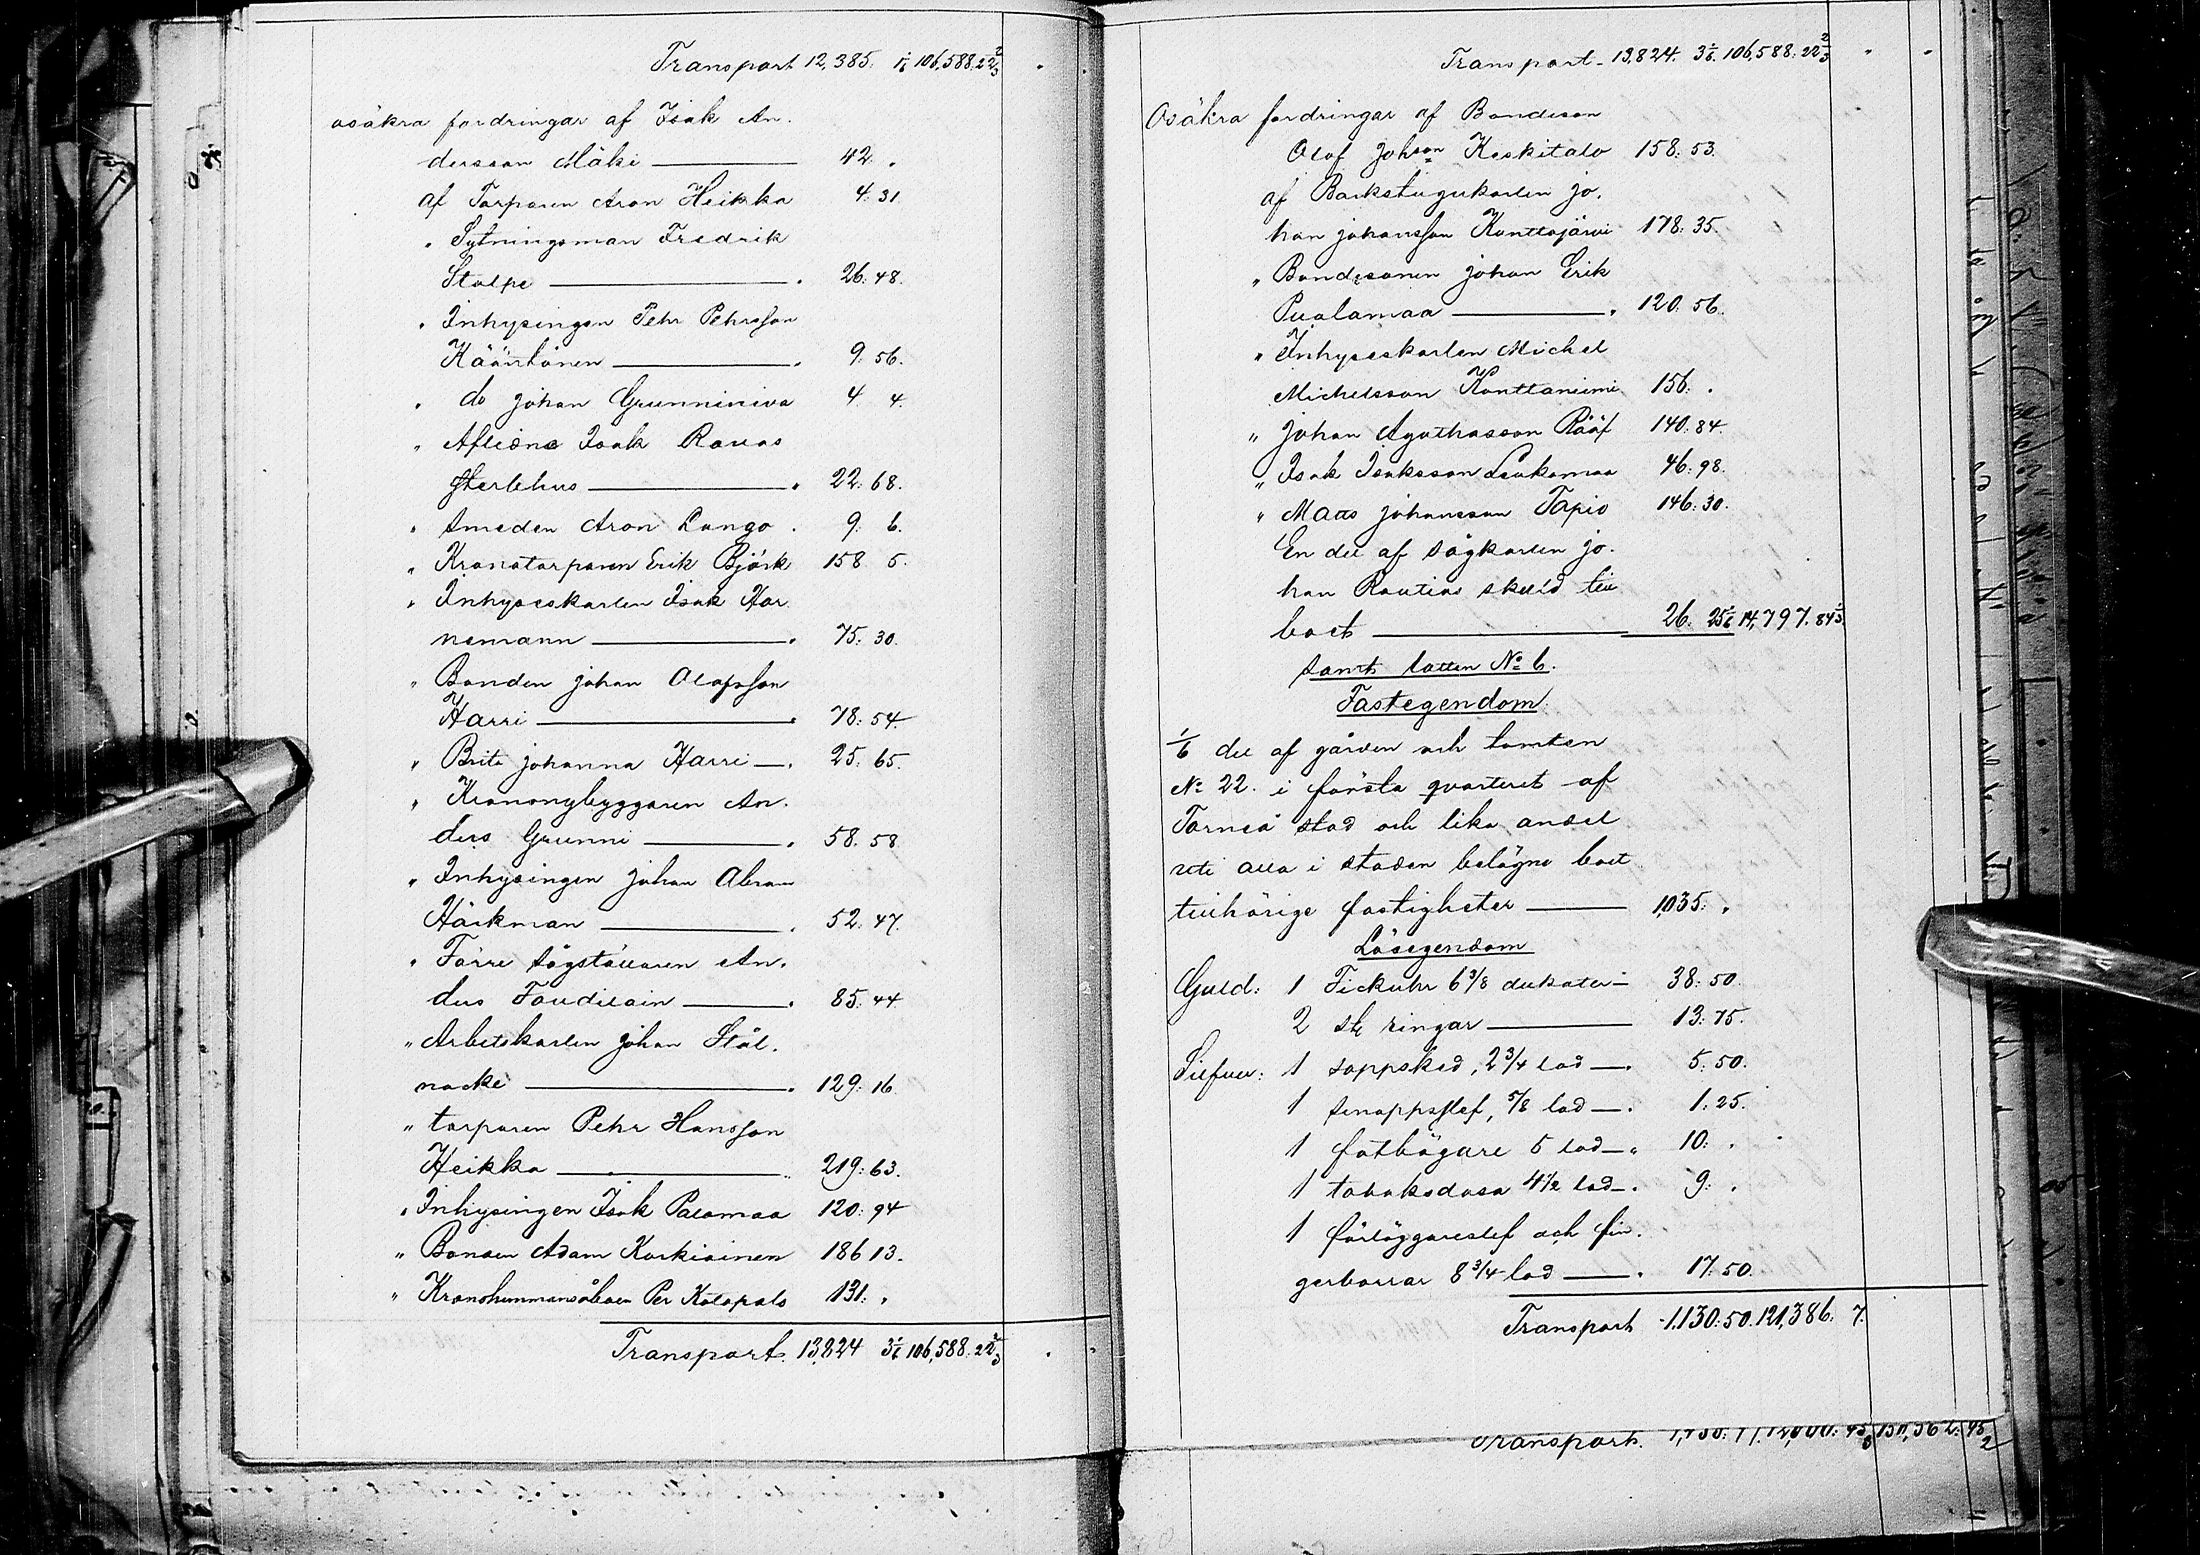 Transport 12,385. 1/6 106,588. 22 2/3
osäkra fordringar af Isak An-
dersson Mäki 42.
af Torparen Aron Heikka 4. 31
" Sytningsman Fredrik
Stolpe 26. 48.
" Inhysingen Pehr Pehrsson
Kääntönen 9. 56.
" do Johan Grunniniva 4 4.
" Aflidne Isak Rauas
sterbhus 22. 68.
" Smeden Aron Lango 9. 6.
" Kronotorparen Erik Björk 158 5.
" Inhyseskarlen Isak Kar
nemann 75. 30.
" Bonden Johan Olofsson
Harri 78: 54
" Brita Johanna Harri 25. 65.
" Krononybyggaren An-
ders Grunni 58. 58
" Inhysingen Johan Abram
Härkman 52. 47.
" Förre sågställaren An-
ders Taudilain 85. 44
" Arbetskarlen Johan Stål-
nacke 129. 16
" torparen Pehr Hansson
Heikka 219: 63.
" Inhysingen Isak Palamaa 120: 94
" Bonden Adam Korkiainen 186 13.
" Kronohemmansåboen Per Kolopalo 131: "
Transport. 13,824 3 1/6 106,588. 22 2/3
Transport 13,824. 3 1/6. 106,588: 22 2/3
Osäkra fordringar af Bondeson
Olof Johson Keskitalo 158: 53.
af Backstugukarlen Jo-
han Johansson Konttajärvi 178: 35.
" Bondesonen Johan Erik
Pualamaa 120. 56.
" Inhyseskarlen Michel
Michelsson Konttaniemi 156: .
" Johan Agathasson Rääf 140: 84.
" Isak Isaksson Leukamaa 46: 98.
" Matts Johansson Tapio 146. 30.
En del af sågkarlen Jo-
han Rautios skuld till
boet 26. 25 1/6 14,797. 84 1/3
samt lotten No 6.
Fastegendom
1/6 del af gården och tomten
No 22. i första qvarteret af
Torneå stad och lika andel
uti alla i staden belägne boet
tillhörige fastigheter 1,035: .
Lösegendom
Guld: 1 Fickuhr 6 3/8 dukater 38: 50.
2 st ringar 13: 75.
Silfver: 1 soppsked, 2 3/4 lod 5: 50.
1 senappsslef, 5/8 lod 1: 25.
1 fotbägare 5 lod 10: .
1 tobaksdosa 4 1/2 lod 9: .
1 förläggareslef och fin-
gerborrar 8 3/4 lod 17: 50.
Transport 1,130: 50. 121,386: 7.
Transport.